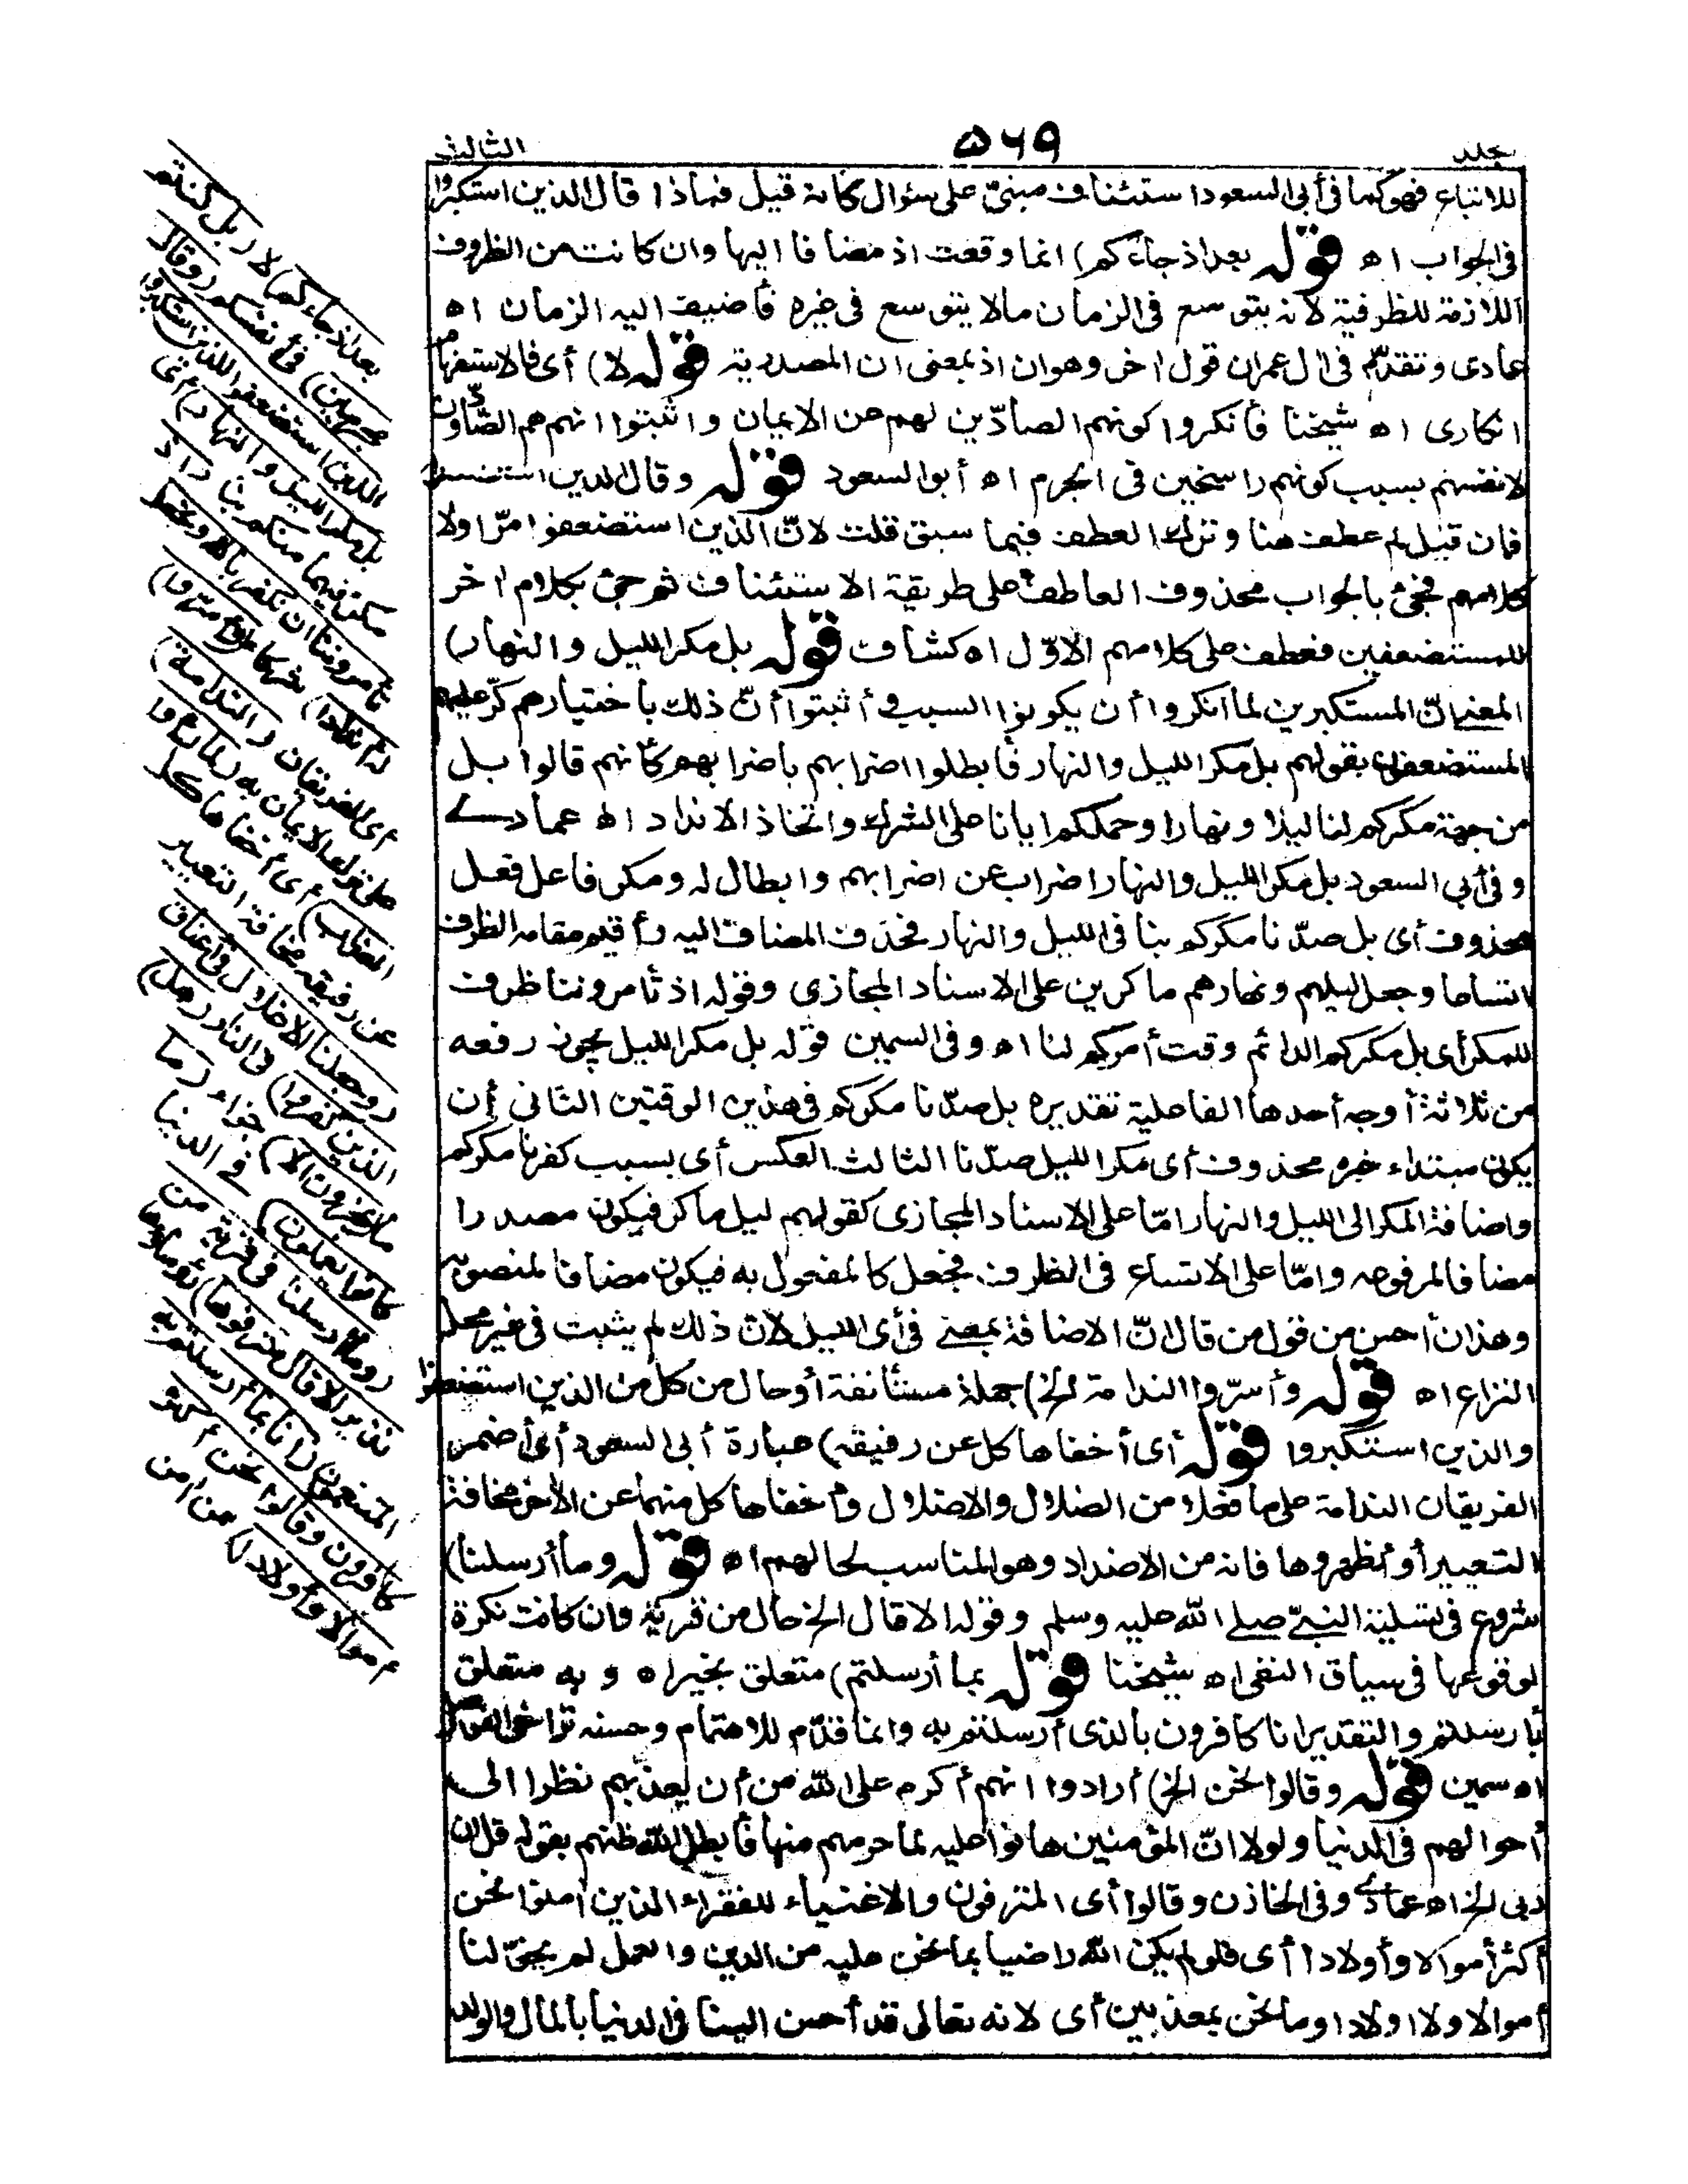 جلد ۵۶۹ الثالث
للاتباع فهو كما فى أبى السعود استئناف مبنىّ على سؤال كأنه قيل فماذا قال الذين استكبروا
فى الجواب اه قوله بعد اذ جاءكم) انما وقعت اذ مضافا اليها وان كانت من الظروف
اللازمة للظرفية لانه يتوسع فى الزمان مالا يتوسع فى غيره فأضيف اليه الزمان اه
عمادى وتقدّم فى ال عمران قول اخر وهو ان اذ بمعنى ان المصدرية قوله لا) أى فالاستفهام
انكارى اه شيخنا فأنكروا كونهم الصادّين لهم عن الايمان واثبتوا انهم هم الصّادّون
لانفسهم بسبب كونهم راسخين فى الجرم اه أبو السعود قوله وقال الذين استضعفوا
فان قيل لم عطف هنا وترك العطف فيما سبق قلت لانّ الذين استضعفوا مرّ اولا
كلامهم فجئ بالجواب محذوف العاطف على طريقة الاستئناف ثم جئ بكلام اخر
للمستضعفين فعطف على كلامهم الاوّل اه كشاف قوله بل مكر الليل والنهار)
المعنى انّ المستكبرين لما انكروا أن يكونوا السبب وأثبتوا أنّ ذلك باختيارهم كرّ عليهم
المستضعفون بقولهم بل مكر الليل والنهار فأبطلوا اضرابهم باضرابهم كأنهم قالوا بل
من جهة مكركم لنا ليلا ونهارا وحملكم ايانا على الشرك واتخاذ الانداد اه عمادى
وفى أبى السعود بل مكر الليل والنهار اضراب عن اضرابهم وابطال له ومكر فاعل فعل
محذوف أى بل صدّنا مكركم بنا فى الليل والنهار فحذف المضاف اليه وأقيم مقامه الظرف
اتساعا وجعل ليلهم ونهارهم ماكرين على الاسناد المجازى وقوله اذ تأمروننا ظرف
للمكر أى بل مكركم الدائم وقت أمركم لنا اه وفى السمين قوله بل مكر الليل يجوز رفعه
من ثلاثة أوجه أحدها الفاعلية تقديره بل صدّنا مكركم فى هذين الوقتين الثانى أن
يكون مبتداء خبره محذوف أى مكر الليل صدّنا الثالث العكس أى بسبب كفرنا مكركم
واضافة المكر الى الليل والنهار امّا على الاسناد المجازى كقولهم ليل ماكر فيكون مصدرا
مضافا لمرفوعه وامّا على الاتساع فى الظرف فجعل كالمفعول به فيكون مضافا لمنصوبه
وهذان أحسن من قول من قال انّ الاضافة بمعنى فى أى الليل لانّ ذلك لم يثبت فى غير محل
النزاع اه قوله وأسرّوا الندامة الخ) جملة مستأنفة أو حال من كل من الذين استضعفوا
والذين استكبروا قوله أى أخفاها كل عن رفيقه) عبارة أبى السعود أى أضمر
الفريقان الندامة على ما فعلا من الضلال والاضلال وأخفاها كل منهما عن الأخر مخافة
التعيير أو أظهروها فانه من الاضداد وهو المناسب لحالهم اه قوله وما أرسلنا)
شروع فى تسلية النبىّ صلى الله عليه وسلم وقوله الا قال الخ حال من قرية وان كانت نكرة
لوقوعها فى سياق النفى اه شيخنا قوله بما أرسلتم) متعلق بخبر اه و به متعلق
بارسلتم والتقدير انا كافرون بالذى أرسلتم به وانما قدّم للاهتمام وحسنه تواخى الفواصل
اه سمين قوله وقالوا نحن الخ) أرادوا انهم أكرم على الله من أن يعذبهم نظرا الى
أحوالهم فى الدنيا ولولا انّ المؤمنين هانوا عليه لما حرمهم منها فأبطل الله ظنهم بقوله قل ان
ربى الخ اه عمادى وفى الخازن وقالوا أى المترفون والاغنياء للفقراء الذين امنوا نحن
أكثر أموالا وأولادا أى فلو لم يكن الله راضيا بما نحن عليه من الدين والعمل لم يخوّلنا
أموالا ولا اولادا وما نحن بمعذبين أى لانه تعالى قد أحسن الينا فى الدنيا بالمال والولد
بعد اذ جاءكم) لا (بل كنتم
مجرمين) فى أنفسكم (وقال
الذين استضعفوا للذين استكبروا
بل مكر الليل والنهار) أى
مكر فيهما منكم بنا (اذ
تأمروننا ان نكفر بالله ونجعل
له أندادا) شركاء (وأسرّوا)
أى الفريقان (الندامة)
على ترك الايمان به (لما رأوا
العذاب) أى أخفاها كل
عن رفيقه مخافة التعيير
(وجعلنا الاغلال فى أعناق
الذين كفروا) فى النار (هل)
ما (يجزون الا) جزاء (ما
كانوا يعملون) فى الدنيا
(وما أرسلنا فى قرية من
نذير الا قال مترفوها) رؤساؤها
المتنعمون (انا بما أرسلتم به
كافرون وقالوا نحن أكثر
أموالا وأولادا) ممن امن